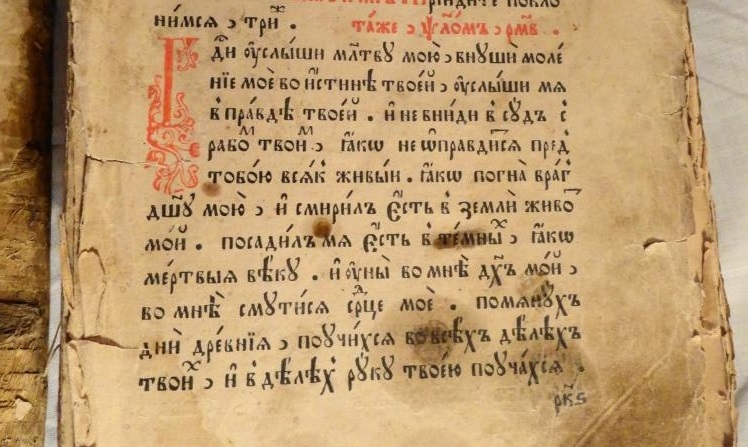 прїидите покло
ни́мсѧ , три́ⷤ . та́же , ѱло́мъ , рм҃в .
Гд҃и оу҆слы́ши мл҃тву мою̀ , внꙋшѝ моле́
нїе моѐ во и҆́стинѣ твое́й , оу҆слы́ши мѧ
в пра́вдѣ твое́й . и҆ не вни́ди в сꙋ́дъ с
рабоⷨ твоиⷨ , ꙗ҆́кѡ не ѡ҆правди́тсѧ пред̾
тобо́ю всѧ́къ живы́и . ꙗ҆́кѡ погна̀ вра́г
дш҃ꙋ мою̀ , и҆ смири́лъ є҆́сть в землѝ живо́
мо́й . посади́лъ мѧ є҆́сть в те́мныⷯ , ꙗ҆́кѡ
ме́ртвыѧ вѣ́кꙋ . и҆ оу҆ны̀ во мнѣ̀ дх҃ъ мо́й ,
во мнѣ̀ смꙋти́сѧ срⷣце моѐ . помѧнꙋ́хъ
днѝ дре́внїѧ , поꙋчи́хсѧ во всѣ́хъ дѣ́лѣхъ
твоиⷯ , и҆ в дѣ́лѣхъ рꙋкꙋ̀ твое́ю поꙋча́хсѧ .
рк҃ѕ